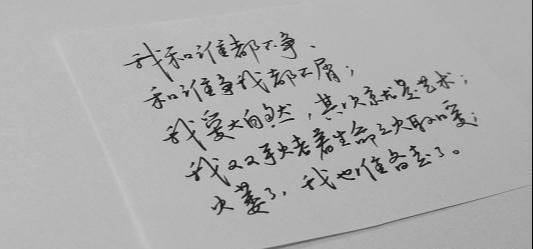 我和谁都不争、
和谁争我都不屑；
我爱大自然，其次就是艺术；
我双手烤着生命之火取暖；
火萎了，我也准备走了。